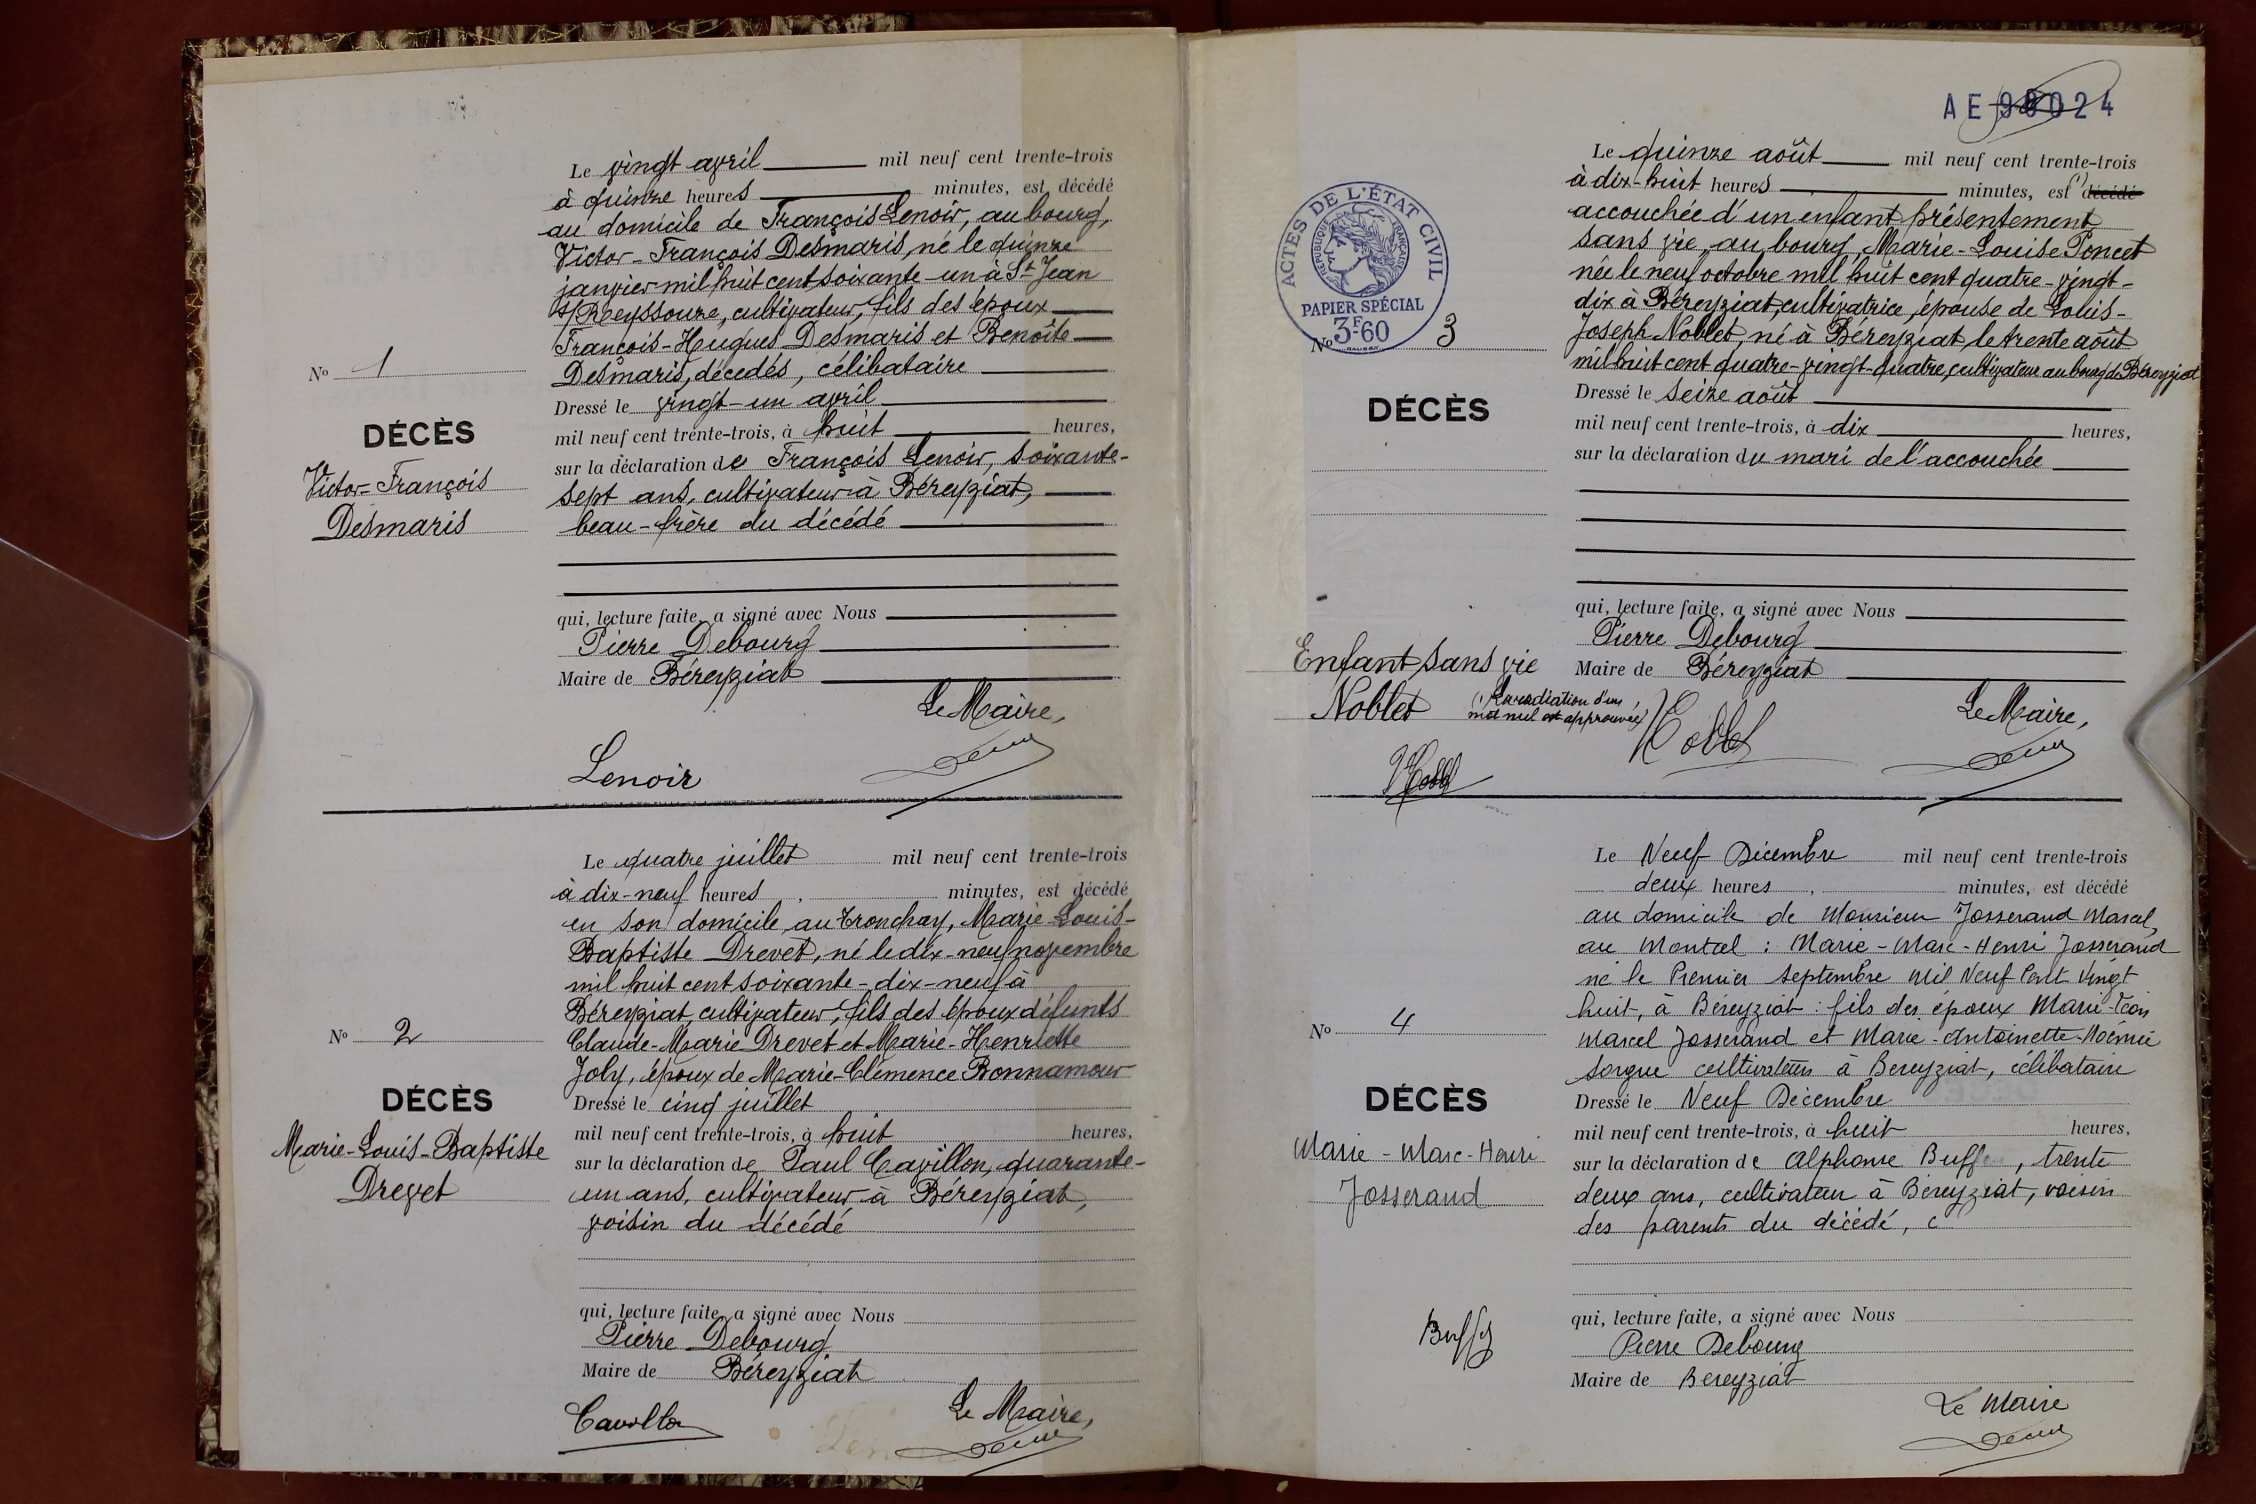 Le vingt avril mil neuf cent trente-trois
à quinze heures minutes, est décédé
au domicile de François Lenoir, au bourg,
Victor-François Desmaris, né le quinze
janvier mil huit cent soixante-un à St Jean
s/Reyssouze, cultivateur, fils des époux
François-Hugues Desmaris et Benoîte
Desmaris, décédés, célibataire
Dressé le vingt-un avril
mil neuf cent trente-trois, à huit heures,
sur la déclaration de François Lenoir, soixante-
sept ans, cultivateur à Béreyziat,
beau-frère du décédé
qui, lecture faite, a signé avec Nous
Pierre Debourg
Maire de Béreyziat
Le Maire,
Lenoir
No 1
DÉCÈS
Victor-François
Desmaris
Le quatre juillet mil neuf cent trente-trois
à dix-neuf heures, minutes, est décédé
en son domicile au Tronchay, Marie-Louis-
Baptiste Drevet, né le dix-neuf novembre
mil huit cent soixante-dix-neuf à
Béreyziat, cultivateur, fils des époux défunts
Claude-Marie Drevet et Marie-Henriette
Joly, époux de Marie-Clémence Bonnamour
Dressé le cinq juillet
mil neuf cent trente-trois, à huit heures,
sur la déclaration de Paul Cavillon, quarante-
un ans, cultivateur à Béreyziat,
voisin du décédé
qui, lecture faite, a signé avec Nous
Pierre Debourg
Maire de Béreyziat
Le Maire,
Cavillon
No 2
DÉCÈS
Marie-Louis-Baptiste
Drevet
AE 98024
ACTES DE L'ÉTAT CIVIL
RÉPUBLIQUE FRANÇAISE
PAPIER SPÉCIAL
3F60
Le quinze août mil neuf cent trente-trois
à dix-huit heures minutes, est (1) décédé
accouchée d'un enfant présentement
sans vie, au bourg, Marie-Louise Poncet
née le neuf octobre mil huit cent quatre-vingt-
dix à Béreyziat, cultivatrice, épouse de Louis-
Joseph Noblet, né à Béreyziat le trente août
mil huit cent quatre-vingt-quatre, cultivateur au bourg de Béreyziat
Dressé le seize août
mil neuf cent trente-trois, à dix heures,
sur la déclaration du mari de l'accouchée
qui, lecture faite, a signé avec Nous
Pierre Debourg
Maire de Béreyziat
Le Maire,
Noblet
No 3
DÉCÈS
Enfant sans vie
Noblet
(1) La radiation d'un
mot nul est approuvée
Le Neuf Décembre mil neuf cent trente-trois
deux heures, minutes, est décédé
au domicile de Monsieur Josserand Marcel,
au Montcel : Marie-Marc-Henri Josserand
né le Premier septembre Mil Neuf Cent Vingt
huit, à Béreyziat : fils des époux Marie-Léon
Marcel Josserand et Marie-Antoinette-Noémie
Sorgue cultivateurs à Bereyziat, célibataire
Dressé le Neuf Décembre
mil neuf cent trente-trois, à huit heures,
sur la déclaration de Alphonse Buffey, trente
deux ans, cultivateur à Béreyziat, voisin
des parents du décédé, c
qui, lecture faite, a signé avec Nous
Pierre Debourg
Maire de Bereyziat
Le Maire
Buffey
No 4
DÉCÈS
Marie-Marc-Henri
Josserand